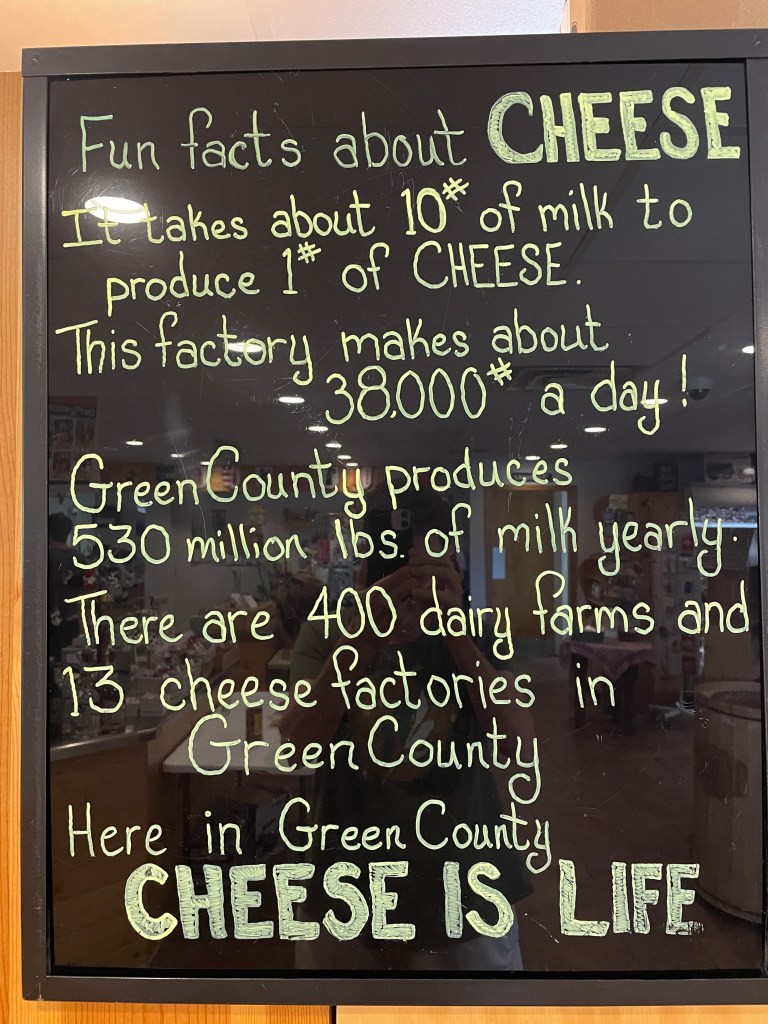 Fun facts about CHEESE
It takes about 10# of milk to
produce 1# of CHEESE.
This factory makes about
38,000# a day!
Green County produces
530 million lbs. of milk yearly.
There are 400 dairy farms and
13 cheese factories in
Green County
Here in Green County
CHEESE IS LIFE